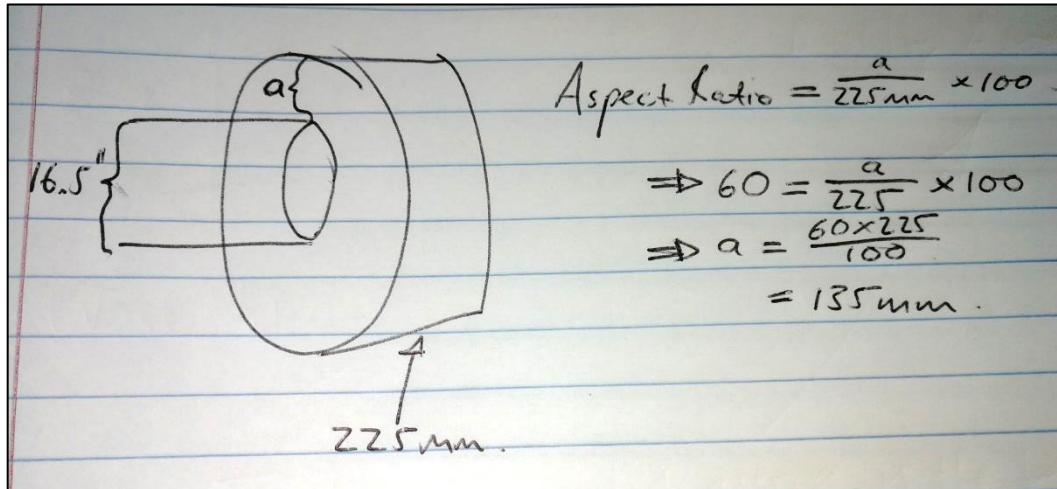 a
16.5"
225mm.
Aspect Ratio = a/225mm × 100
⇒ 60 = a/225 × 100
⇒ a = 60×225/100
= 135mm.